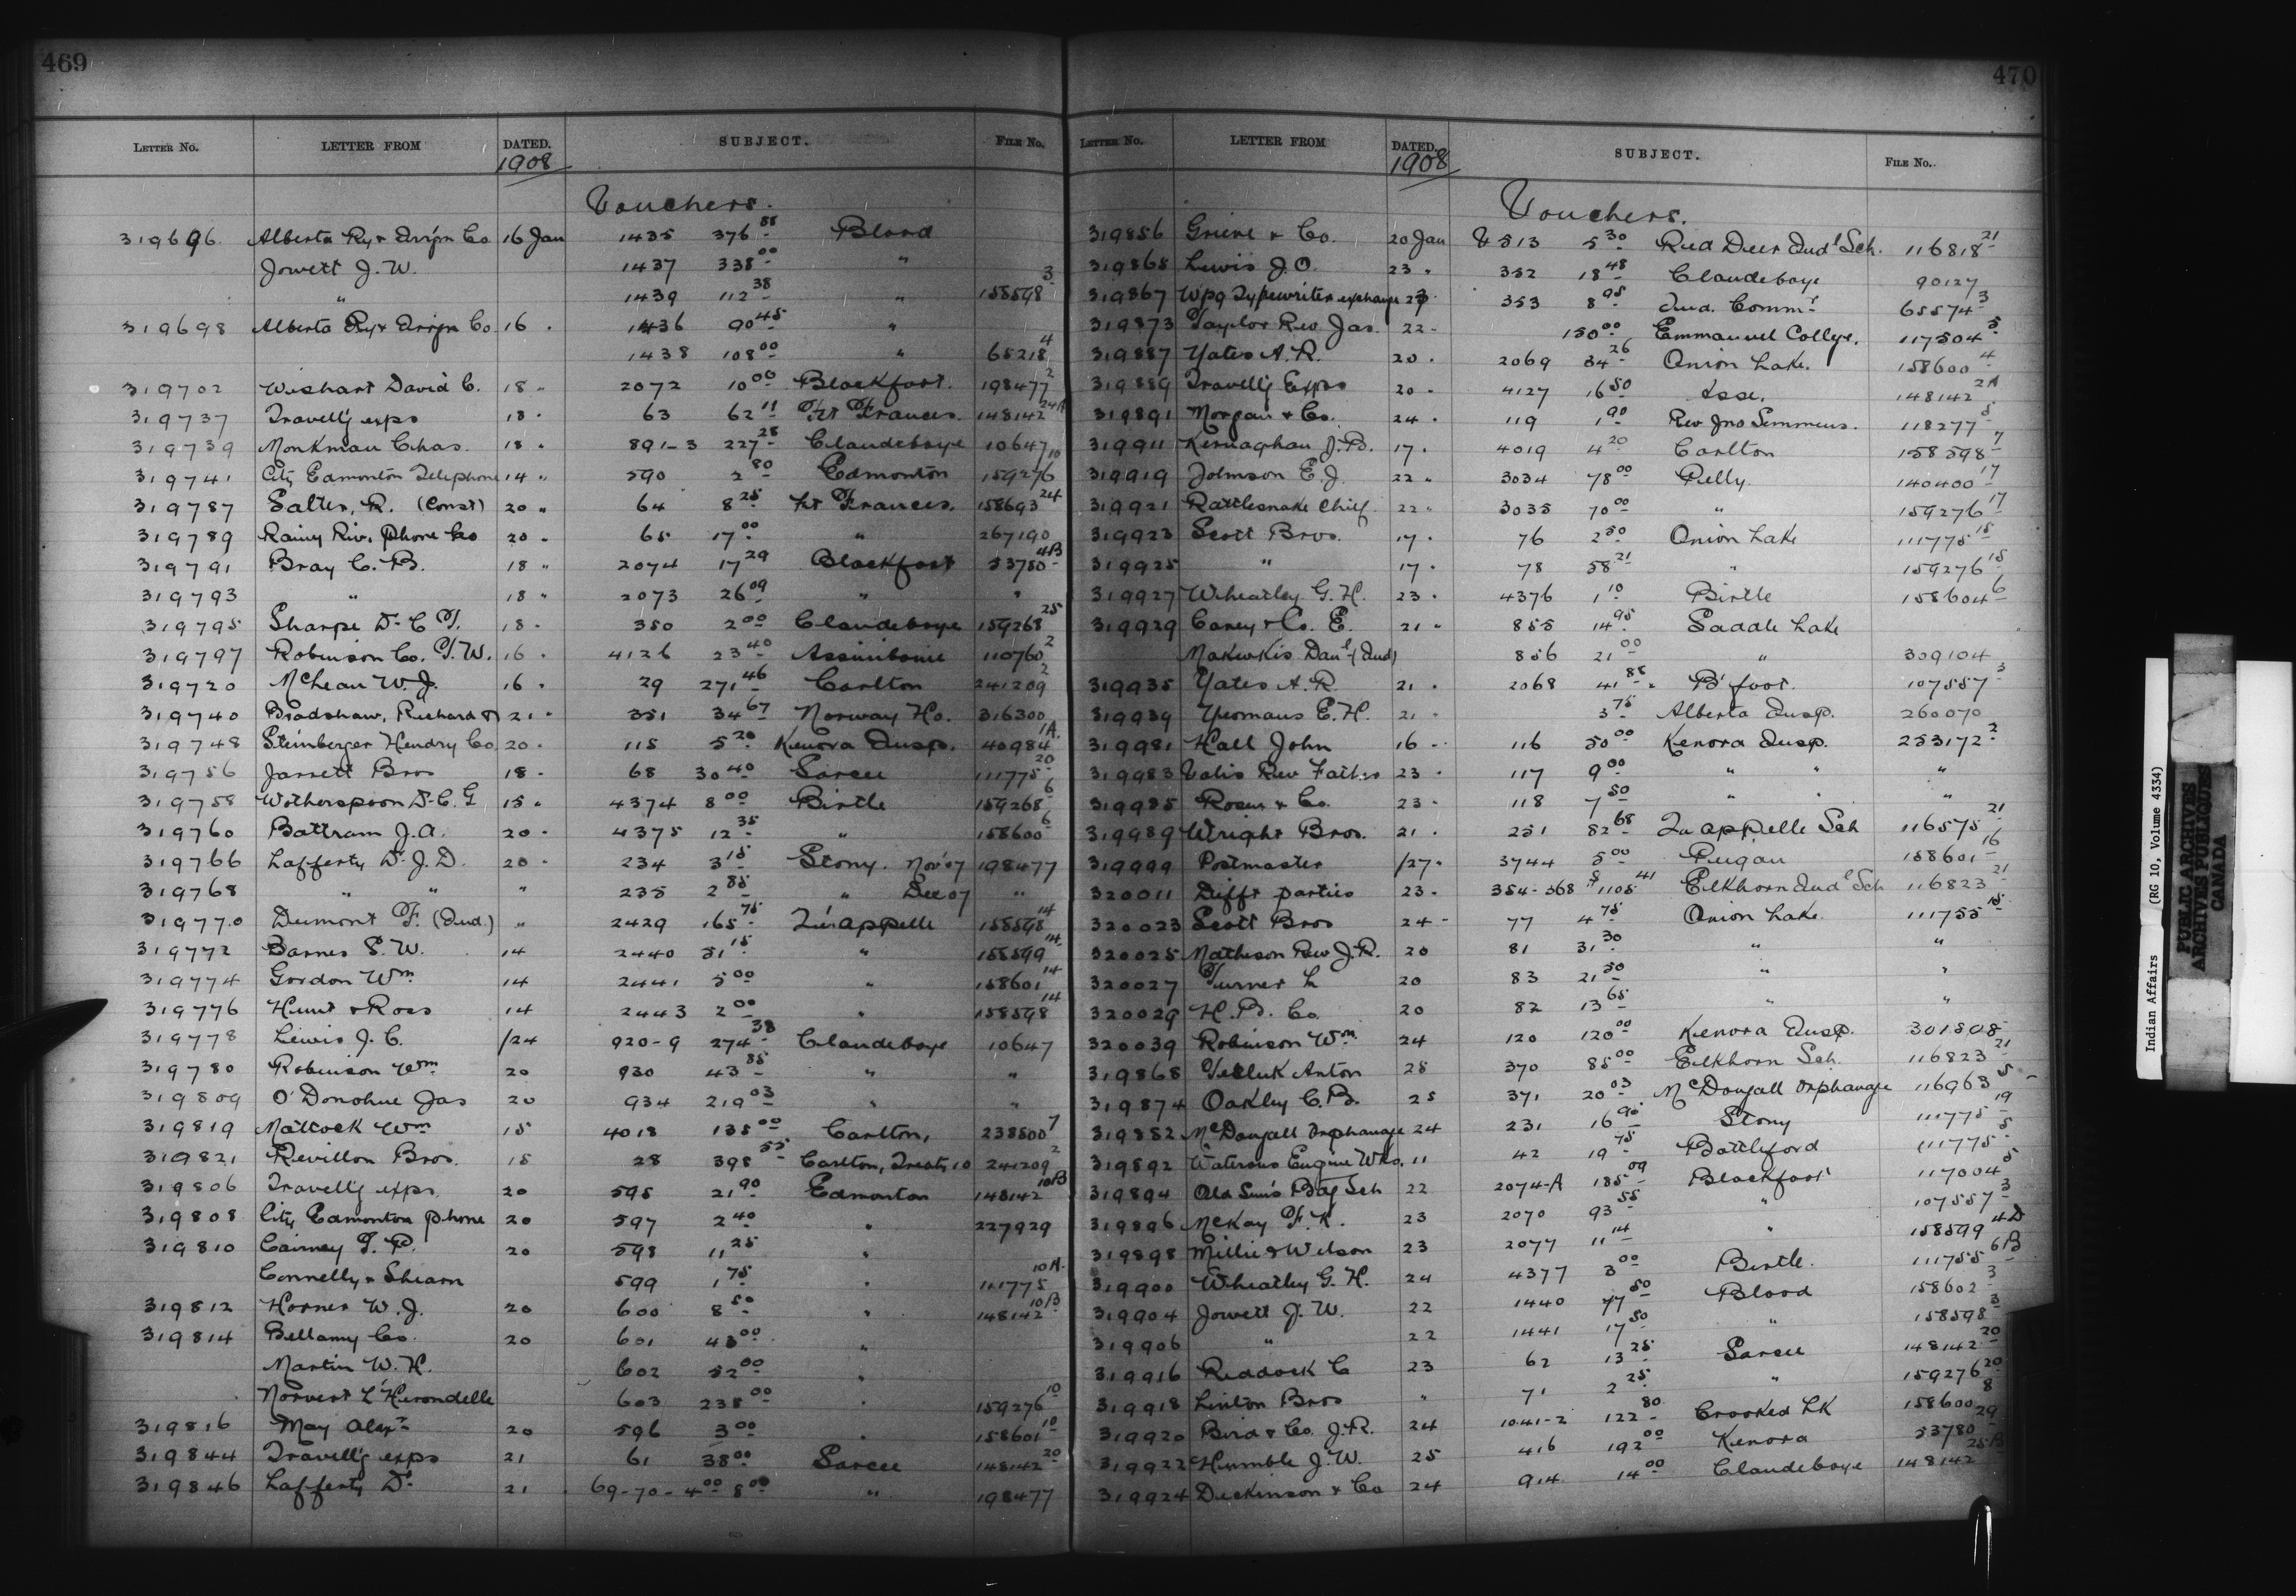 469
LETTER NO. LETTER FROM DATED. SUBJECT. FILE NO.
1908
Vouchers.
319696 Alberta Ry & Irrign Co 16 Jan 1435 376 88 Blood
Jowett J. W. 1437 338 00 "
" 1439 112 38 " 158598 3
319698 Alberta Ry & Irrign Co 16 . 1436 90 45 "
1438 108 00 " 65218 4
319702 Wishart David C. 18 " 2072 10 00 Blackfoot. 198477 2
319737 Travell'g exps 18 . 63 62 11 Frt Frances. 148142 24A
319739 Monkman Chas. 18 . 891-3 227 25 Clandeboye 10647
319741 City Edmonton Telephone 14 " 590 2 80 Edmonton 159276 10
319787 Salter, R. (Const) 20 " 64 8 25 Frt Frances. 158693 24
319789 Rainy Riv. Phone Co 20 . 65 17 00 " 267190
319791 Bray C. B. 18 " 2074 17 29 Blackfoot 53780 4B
319793 " 18 " 2073 26 09 " "
319795 Sharpe Dr C T. 18 . 350 2 00 Clandeboye 159268 25
319797 Robinson Co. T. W. 16 . 4126 23 40 Assiniboine 110760 2
319720 McLean W. J. 16 . 29 271 46 Carlton 241209 2
319740 Bradshaw, Richard 21 . 351 34 67 Norway Ho. 316300
319748 Steinberger Hendry Co 20 . 115 5 20 Kenora Insp. 40984 1A.
319756 Jarrett Bros 18 . 68 30 40 Sarcee 111775 20
319758 Wotherspoon Dr C. G 15 . 4374 8 00 Birtle 159268 6
319760 Battram J. A. 20 . 4375 12 35 " 158600 6
319766 Lafferty Dr J. D. 20 . 234 3 15 Stony. Nov 07 198477
319768 " " " 235 2 85 " Dec 07 "
319770 Dumont F. (Ind.) " 2429 165 75 Qu'appelle 158598 14
319772 Barnes S. W. 14 2440 51 15 " 158599 14
319774 Gordon Wm 14 2441 5 00 " 158601 14
319776 Hunt & Ross 14 2443 2 00 " 158598 14
319778 Lewis J. C. /24 920-9 274 38 Clandeboye 10647
319780 Robinson Wm 20 930 43 85 " "
319809 O'Donohue Jas 20 934 219 03 " "
319819 Mattock Wm 15 4018 138 00 Carlton, 238500 7
319821 Revillon Bros. 15 28 398 55 Carlton, Treaty 10 241209 2
319806 Travell'g exps 20 595 21 90 Edmonton 148142 10B
319808 City Edmonton phone 20 597 2 40 " 227929
319810 Cairney T. P. 20 598 11 25 "
Connelly & Shearn 599 1 75 " 111775 10A.
319812 Horner W. J. 20 600 8 50 " 148142 10B
319814 Bellamy Co. 20 601 43 00 "
Martin W. H. 602 52 00 "
Norvert L'Hirondelle 603 238 00 " 159276 10
319816 May Alexr 20 596 3 00 " 158601 10
319844 Travell'g exps 21 61 38 00 Sarcee 148142 20
319846 Lafferty Dr 21 69-70 - 4 00 8 00 " 198477
470
LETTER NO. LETTER FROM DATED. SUBJECT. FILE NO.
1908
Vouchers.
319856 Grieve & Co. 20 Jan V 513 5 30 Red Deer Indl Sch. 116818 21
319865 Lewis J. O. 23 " 352 18 48 Clandeboye 90127
319867 Wpg Typewriter exchange 23 . 353 8 95 Ind. Commr 65574 3
319873 Taylor Rev Jas. 22 . 150 00 Emmanuel College. 117504 5
319887 Yates A. R. 20 . 2069 34 26 Onion Lake. 158600 4
319889 Travell'g Exps 20 . 4127 16 50 Asse. 148142 2A
319891 Morgan & Co. 24 . 119 1 90 Rev Jno Semmens. 118277 5
319911 Kernaghan J. B. 17 . 4019 4 20 Carlton 158598 7
319919 Johnson E. J. 22 " 3034 78 00 Pelly 140400 17
319921 Rattlesnake Chief 22 " 3035 70 00 " 159276 17
319923 Scott Bros. 17 . 76 2 50 Onion Lake 111775 15
319925 " 17 . 78 58 21 " 159276 15
319927 Wheatley G. H. 23 . 4376 1 10 Birtle 158604 6
319929 Carey & Co. E. 21 " 855 14 95 Saddle Lake
Makwkis Danl (Ind) 856 21 00 " 309104
319935 Yates A. R. 21 . 2068 41 85 B'foot. 107557 3
319939 Yeomans E. H. 21 . 3 75 Alberta Insp. 260070
319981 Hall John 16 . 116 50 00 Kenora Insp. 253172 2
319983 Valis Rev Father 23 . 117 9 00 " " "
319985 Rosen & Co. 23 . 118 7 50 " " "
319989 Wright Bros. 21 . 251 82 68 Qu'appelle Sch 116575 21
319999 Postmaster /27 . 3744 5 00 Peigan 158601 16
320011 Diffr parties 23 . 354-368 $1105 41 Elkhorn Indl Sch 116823 21
320023 Scott Bros 24 . 77 4 75 Onion Lake. 111755 15
320025 Matheson Rev J. R. 20 81 31 30 " "
320027 Turner L 20 83 21 50 " "
320029 H. B. Co. 20 82 13 65 " "
320039 Robinson Wm 24 120 120 00 Kenora Insp. 301808
319868 Yesluk Anton 25 370 85 00 Elkhorn Sch. 116823 21
319874 Oakley C. B. 25 371 20 03 McDougall Orphanage 116963 5
319882 McDougall Orphanage 24 231 16 90 Stony 111775 19
319892 Waterous Engine Wks. 11 42 19 75 Battleford 111775 5
319894 Old Sun's Bdg Sch 22 2074-A 185 09 Blackfoot 117004 5
319896 McKay F. K. 23 2070 93 55 " 107557 3
319898 Millie & Wilson 23 2077 11 14 " 158599 4D
319900 Wheatley G. H. 24 4377 3 00 Birtle. 111755 6B
319904 Jowett J. W. 22 1440 77 50 Blood 158602 3
319906 " 22 1441 17 50 " 158598 3
319916 Reddock C 23 62 13 25 Sarcee 148142 20
319918 Linton Bros " 71 2 25 " 159276 20
319920 Bird & Co. J. R. 24 1041-2 122 80 Crooked Lk 158600 8
319922 Humble J. W. 25 416 192 00 Kenora 53780 29
319924 Dickinson & Co 24 914 14 00 Clandeboye 148142 25B
Indian Affairs (RG 10, Volume 4334)
PUBLIC ARCHIVES
ARCHIVES PUBLIQUES
CANADA